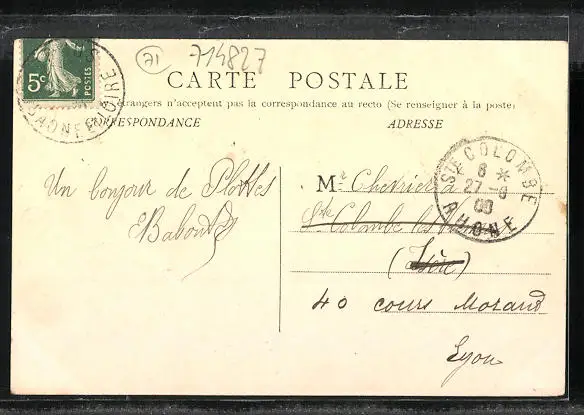 71
714827
5c
POSTES
SAONE-ET-LOIRE
CARTE POSTALE
étrangers n'acceptent pas la correspondance au recto (Se renseigner à la poste)
CORRESPONDANCE
ADRESSE
STE COLOMBE
6 *
27-9
08
RHONE
Un bonjour de Plottes
M.r Chevrier à
Ste Colombe les
(Isère)
40 cours Morand
Lyon